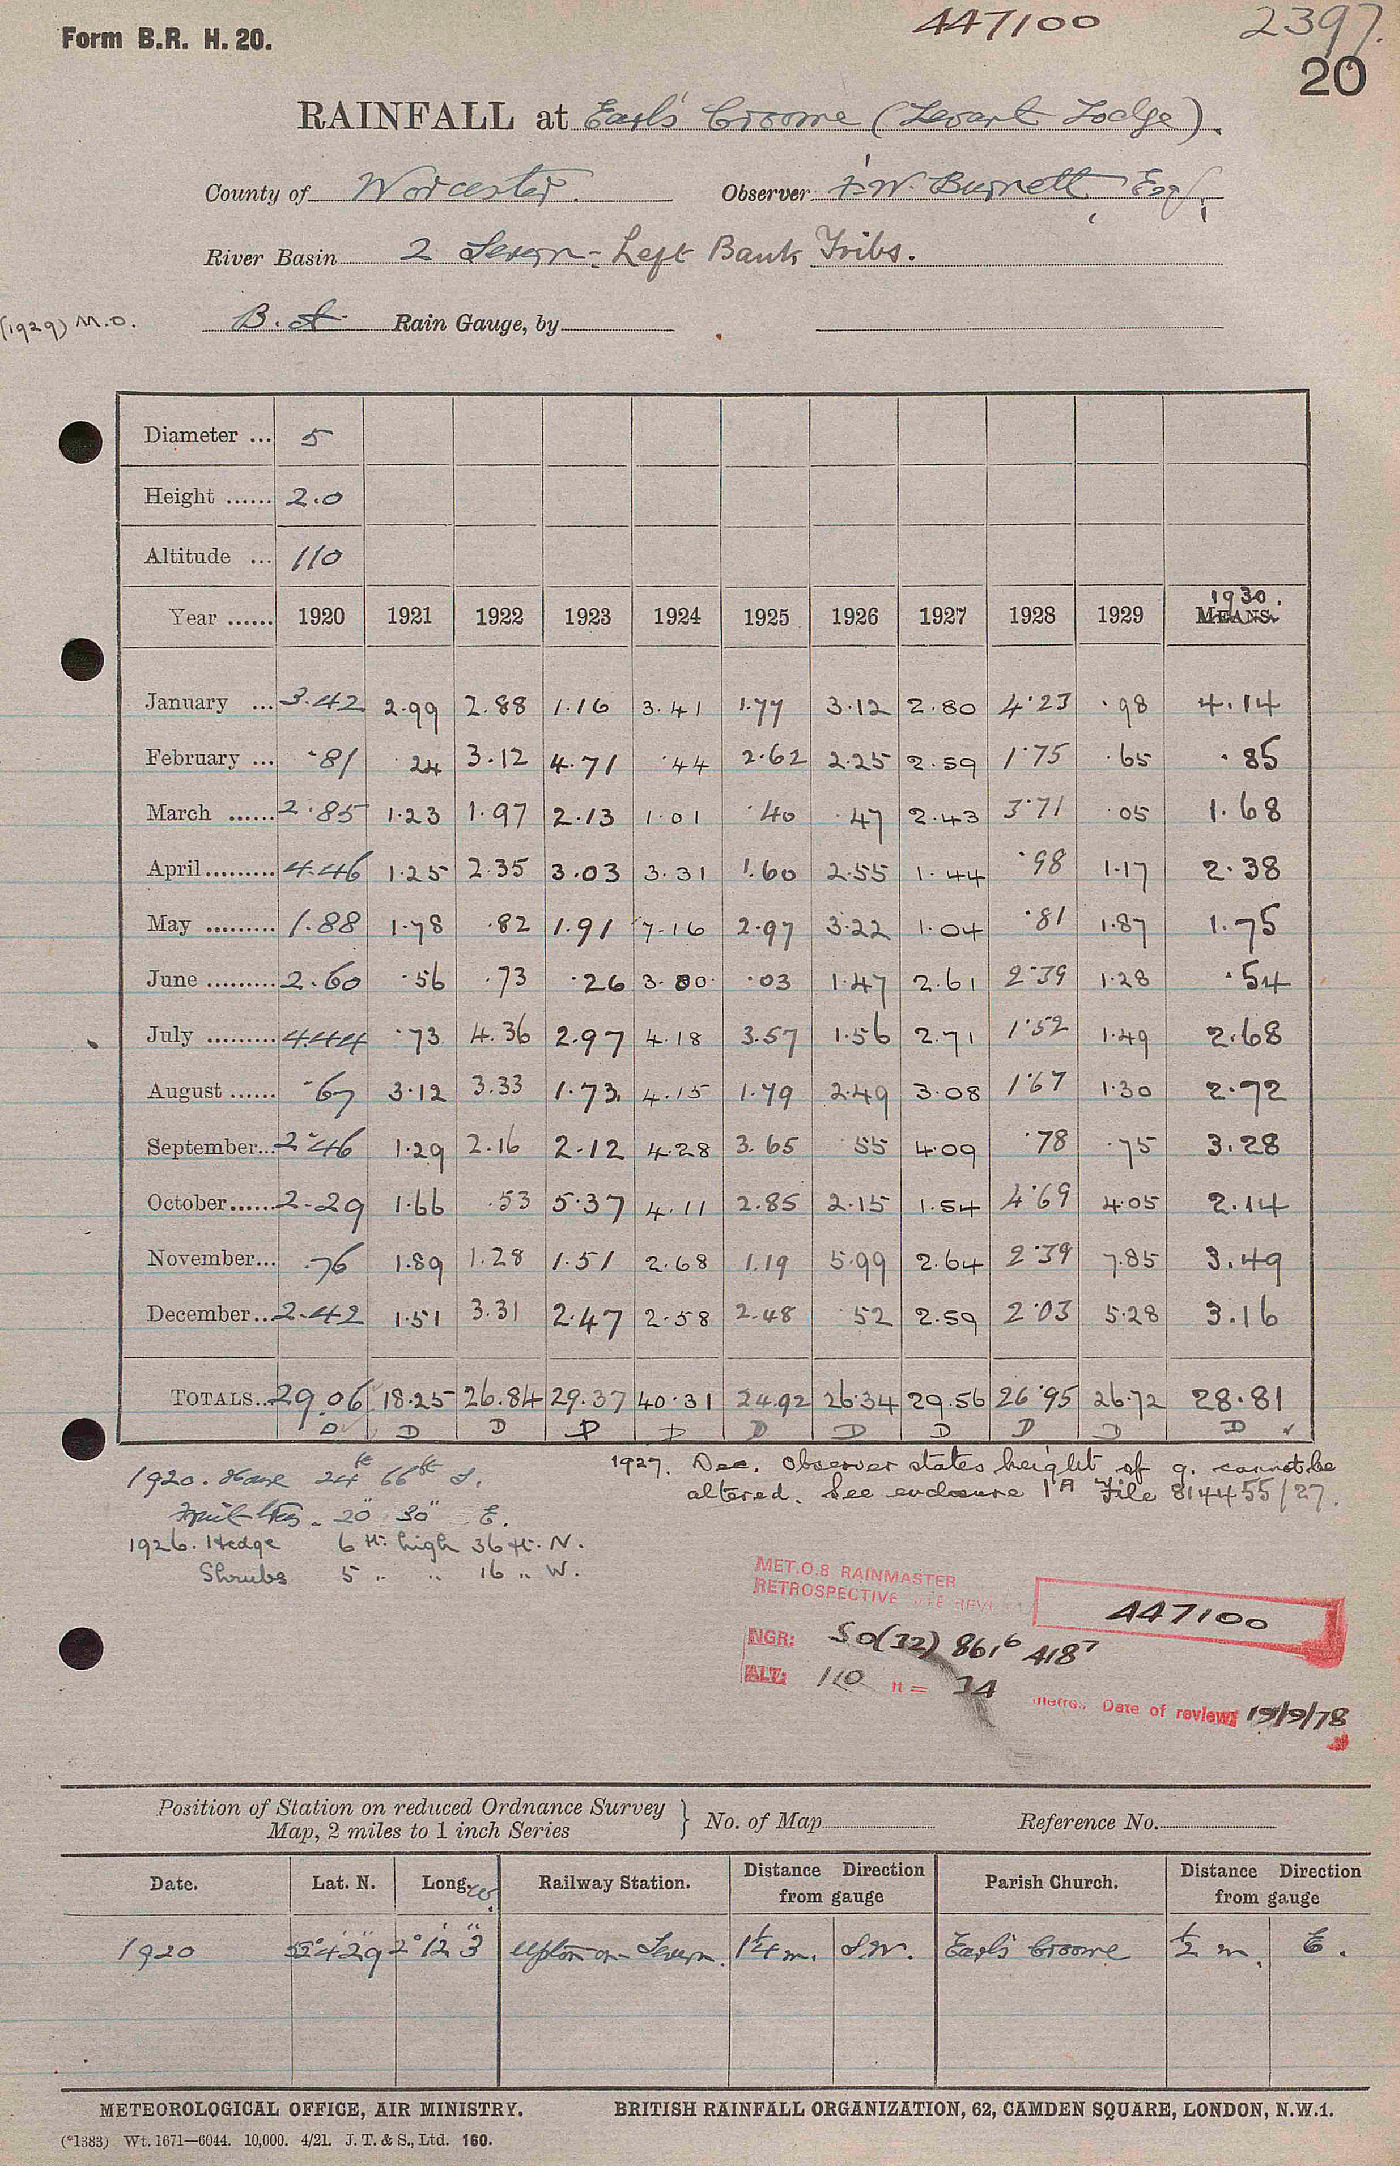 447100 2397.
Form B.R. H. 20.
20
RAINFALL at Earl's Croome (Levant Lodge).
County of Worcester. Observer F. W. Burnett, Esq.
River Basin 2 Severn - Left Bank Tribs.
(1929) M.O. B.A. Rain Gauge, by
Diameter ... 5
Height ...... 2.0
Altitude ... 110
1930.
Year ...... 1920 1921 1922 1923 1924 1925 1926 1927 1928 1929 MEANS.
January ... 3.42 2.99 2.88 1.16 3.41 1.77 3.12 2.80 4.23 .98 4.14
February ... .81 .24 3.12 4.71 .44 2.62 2.25 2.59 1.75 .65 .85
March ...... 2.85 1.23 1.97 2.13 1.01 .40 .47 2.43 3.71 .05 1.68
April ......... 4.46 1.25 2.35 3.03 3.31 1.60 2.55 1.44 .98 1.17 2.38
May ......... 1.88 1.78 .82 1.91 7.16 2.97 3.22 1.04 .81 1.87 1.75
June ......... 2.60 .56 .73 .26 3.00 .03 1.47 2.61 2.39 1.28 .54
July ......... 4.44 .73 4.36 2.97 4.18 3.57 1.56 2.71 1.52 1.49 2.68
August ...... .67 3.12 3.33 1.73 4.15 1.79 2.49 3.08 1.67 1.30 2.72
September... 2.46 1.29 2.16 2.12 4.28 3.65 .55 4.09 .78 .75 3.28
October...... 2.29 1.66 .53 5.37 4.11 2.85 2.15 1.54 4.69 4.05 2.14
November... .76 1.89 1.28 1.51 2.68 1.19 5.99 2.64 2.39 7.85 3.49
December... 2.42 1.51 3.31 2.47 2.58 2.48 .52 2.59 2.03 5.28 3.16
TOTALS... 29.06 18.25 26.84 29.37 40.31 24.92 26.34 29.56 26.95 26.72 28.81
D D D D D D D D D D D
1920. House 24ft 66ft S.
Fruit trees 20" 30" E.
1926. Hedge 6 ft. high 36 ft. N.
Shrubs 5 " " 16 " W.
1927. Dec. Observer states height of g. cannot be
altered. See enclosure 1A File 814455/27.
MET.O.8 RAINMASTER
RETROSPECTIVE SITE REVIEW
447100
NGR: SO(32) 861⁶ 418⁷
ALT: 110 ft = 34 metres. Date of review: 19/9/78
Position of Station on reduced Ordnance Survey
Map, 2 miles to 1 inch Series } No. of Map Reference No.
Date. Lat. N. Long. W. Railway Station. Distance Direction from gauge Parish Church. Distance Direction from gauge
1920 52° 4' 29" 2° 12' 3" Upton-on-Severn. 1¼ m. S.W. Earl's Croome ½ m. E.
METEOROLOGICAL OFFICE, AIR MINISTRY. BRITISH RAINFALL ORGANIZATION, 62, CAMDEN SQUARE, LONDON, N.W.1.
(*1383) Wt. 1671—6044. 10,000. 4/21. J. T. & S., Ltd. 160.